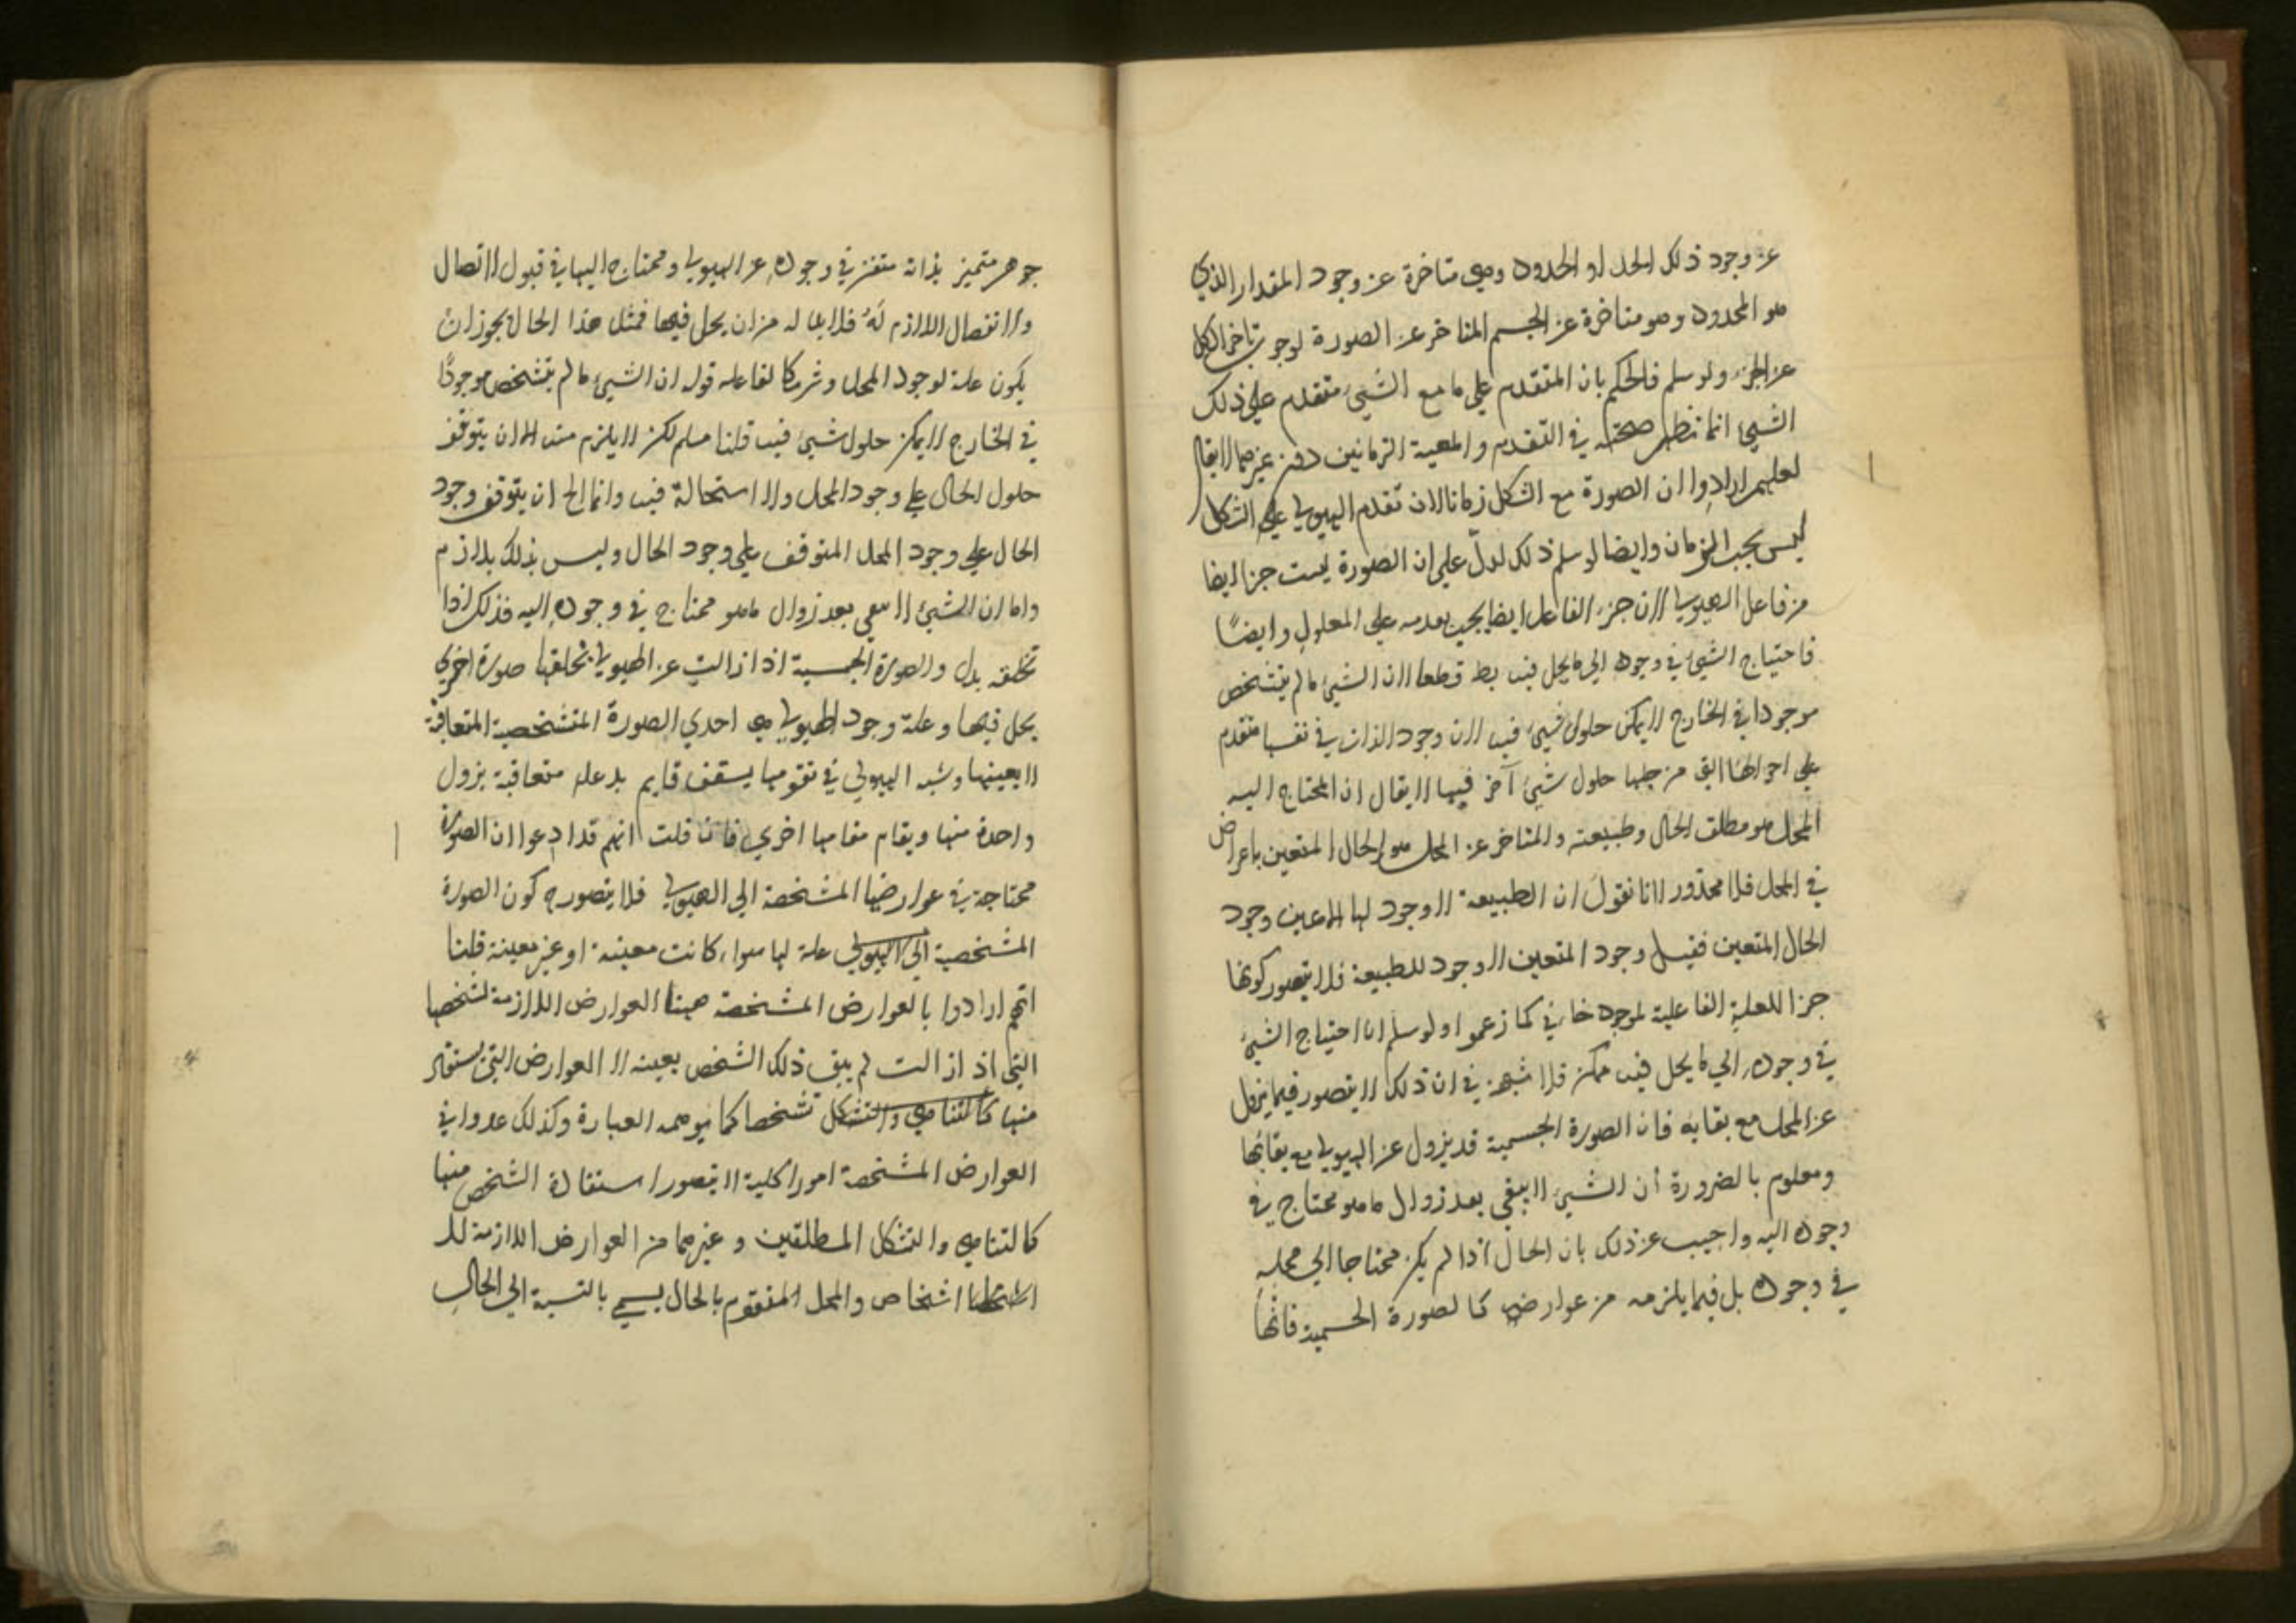 عن وجود ذلك الحد او الحدود وهي متاخرة عن وجود المقدار الذي
هو المحدود وهو متاخرة عن الجسم المتاخر عن الصورة لوجوب تاخر الكل
عن الجزء ولو سلم فالحكم بان المتقدم على ما مع الشيء متقدم على ذلك
الشيء انما تظهر صحته في التقدم والمعية الزمانيين دون غيرهما لا يقال
لعلهم ارادوا ان الصورة مع الشكل زمانا لان تقدم الهيولي على الشكل
ليس بحسب الزمان وايضا لو سلم ذلك لدل على ان الصورة ليست جزا ايضا
من فاعل الهيولي لان جزء الفاعل ايضا يجب تقدمه على المعلول وايضًا
فاحتياج الشيء في وجوده الى ما يحل فيه بط قطعا لان الشيء ما لم يتشخص
موجودا في الخارج لا يمكن حلول شيء فيه لان وجود الذات في نفسها متقدم
على احوالها التي من جلها حلول شيء آخر فيها لا يقال ان المحتاج اليه
المحل هو مطلق الحال وطبيعته والمتاخر عن المحل هو الحال المتعين باعراض
في المحل فلا محذور لانا نقول ان الطبيعة لا وجود لها الا عين وجود
الحال المتعين فقبل وجود المتعين لا وجود للطبيعة فلا يتصور كونها
جزا للعلية الفاعلية لموجود خارجي كما زعموا ولو سلم ان احتياج الشيء
في وجوده الي ما يحل فيه ممكن فلا شبهة في ان ذلك لا يتصور فيما يزول
عن المحل مع بقايه فان الصورة الجسمية قد يزول عن الهيولي مع بقائها
ومعلوم بالضرورة أن الشيء لا يبقي بعد زوال ما هو محتاج في
وجوده اليه واجيب عن ذلك بان الحال اذا لم يكن محتاجا الي محله
في وجوده بل فيما يلزمه من عوارضه كالصورة الجسمية فانها
جوهر متميز بذاته متقرر في وجوده عن الهيولي ومحتاج اليها في قبول الاتصال
والانفصال اللازم لهُ فلا بد له من ان يحل فيها فمثل هذا الحال يجوز ان
يكون علة لوجود المحل وشريكا لفاعله قوله ان الشيء ما لم يتشخص موجودًا
في الخارج لا يمكن حلول شيء فيه قلنا مسلم لكن لا يلزم منه الا ان يتوقف
حلول الحال على وجود المحل ولا استحالة فيه وانما المح ان يتوقف وجود
الحال على وجود المحل المتوقف على وجود الحال وليس بذلك بلازم
واما ان الشيء لا يبقى بعد زوال ما هو محتاج في وجوده اليه فذلك اذا لم
تخلفه بدل والصورة الجسمية اذا زالت عن الهيولي تخلفها صورة اخري
يحل فيها وعلة وجود الهيولي هي احدي الصورة المتشخصية المتعاقبة
لا بعينها وشبه الهيولي في تقومها بسقف قايم بدعايم متعاقبة يزول
واحدة منها ويقام مقامها اخري فان قلت انهم قد ادعوا ان الصورة
محتاجة في عوارضها المشخصة الي الهيولي فلا يتصوره كون الصورة
المشخصية الي الهيولي علة لها سواء كانت معينة او غير معينة قلنا
انهم ارادوا بالعوارض المشخصة ههنا العوارض اللازمة لشخصها
التي اذ ازالت لم يبق ذلك الشخص بعينه لا العوارض التي يستفاد
منها كالتناهي والتشكل تشخصا كما يوهمه العبارة وكذلك عدوا في
العوارض المشخصة امورا كلية لا يتصور استفادة الشخص منها
كالتناهي والتشكل المطلقين وغيرهما من العوارض اللازمة للا
اشخاص والمحل المتقوم بالحال يسمي بالنسبة الي الحال